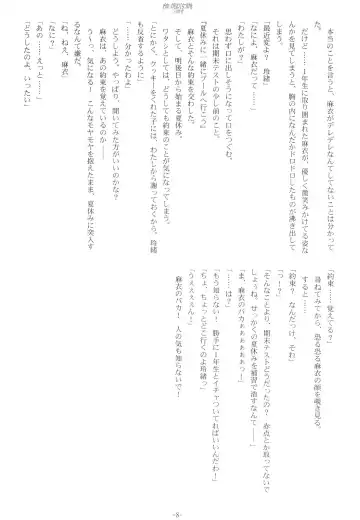 本当のことを言うと、麻衣がデレデレなんてしてないことは分かって
いた。
だけど……１年生に取り囲まれた麻衣が、優しく微笑みかけてる姿な
んかを見てしまうと、胸の内になんだかドロドロしたものが沸き出して
しまう。
「最近変よ？　玲緒」
「なによ、麻衣なんだって――」
思わず口に出しそうになって口をつぐむ。
それは期末テストの少し前のこと。
『夏休みに、一緒にプールへ行こう』
麻衣とそんな約束を交わした。
そして、明後日から始まる夏休み。
ワタシとしては、どうしても約束のことが気になってしまう。
「とにかく、クッキーをくれた子には、わたしから謝っておくから。玲緒
も反省するように」
「……分かったわよ」
どうしよう。やっぱり、聞いてみた方がいいのかな？
麻衣は、あの約束を覚えているのかな――
うーっ、気になる！　こんなモヤモヤを抱えたまま、夏休みに突入す
るなんて嫌だ。
「ね、ねえ、麻衣」
「なに？」
「あの……えっと……」
「どうしたの、いったい」
「約束……覚えてる？」
尋ねてみてから、恐る恐る麻衣の顔を覗き見る。
すると――
「約束？　なんだっけ、それ」
「っ！？」
「そんなことより、期末テストどうだったの？　赤点とか取ってないで
しょうね。せっかくの夏休みを補習で潰すなんて――」
「ま、麻衣のバカぁぁぁぁぁっ！」
「……は？」
「もう知らない！　勝手に１年生とイチャついてればいいんだわ！」
「ちょ、ちょっとどこ行くのよ玲緒っ」
「うぇぇぇぇん！」
麻衣のバカ！　人の気も知らないで！
-8-